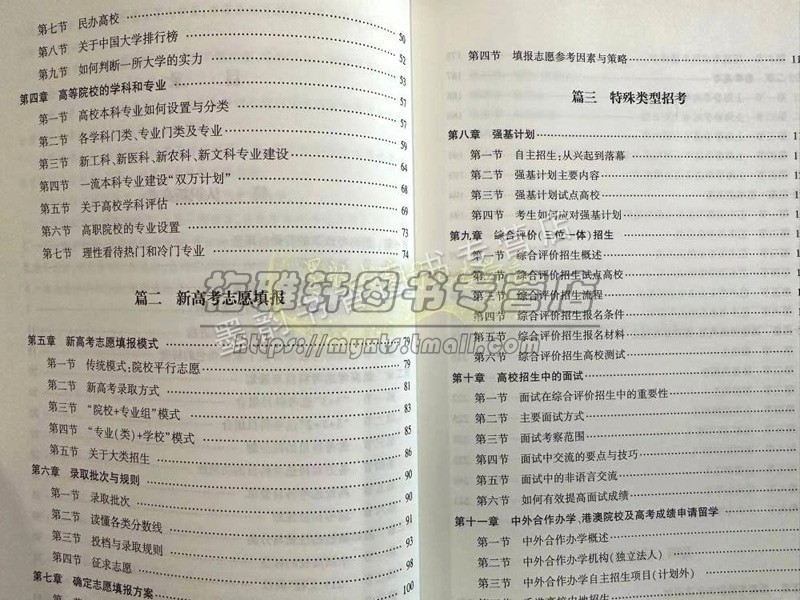 第七节 民办高校 50
第八节 关于中国大学排行榜 52
第九节 如何判断一所大学的实力 53
第四章 高等院校的学科和专业 57
第一节 高校本科专业如何设置与分类 57
第二节 各学科门类、专业门类及专业 60
第三节 新工科、新医科、新农科、新文科专业建设 64
第四节 一流本科专业建设“双万计划” 66
第五节 关于高校学科评估 69
第六节 高职院校的专业设置 73
第七节 理性看待热门和冷门专业 74
篇二 新高考志愿填报
第五章 新高考志愿填报模式
第一节 传统模式:院校平行志愿 79
第二节 新高考录取方式 81
第三节 “院校+专业组”模式 83
第四节 “专业(类)+学校”模式 85
第五节 关于大类招生 86
第六章 录取批次与规则 90
第一节 录取批次 90
第二节 读懂各类分数线 91
第三节 投档与录取规则 93
第四节 征求志愿 98
第七章 确定志愿填报方案 100
第四节 填报志愿参考因素与策略
篇三 特殊类型招考
第八章 强基计划
第一节 自主招生:从兴起到落幕
第二节 强基计划主要内容
第三节 强基计划试点高校
第四节 考生如何应对强基计划
第九章 综合评价(三位一体)招生
第一节 综合评价招生概述
第二节 综合评价招生试点高校
第三节 综合评价招生流程
第四节 综合评价招生报名条件
第五节 综合评价招生报名材料
第六节 综合评价招生高校测试
第十章 高校招生中的面试
第一节 面试在综合评价招生中的重要性
第二节 主要面试方式
第三节 面试考察范围
第四节 面试中交流的要点与技巧
第五节 面试中的非语言交流
第六节 如何有效提高面试成绩
第十一章 中外合作办学、港澳院校及高考成绩申请留学
第一节 中外合作办学概述
第二节 中外合作办学机构(独立法人)
第三节 中外合作办学自主招生项目(计划外)
梅雅轩图书专营店
https://myxts.tmall.com